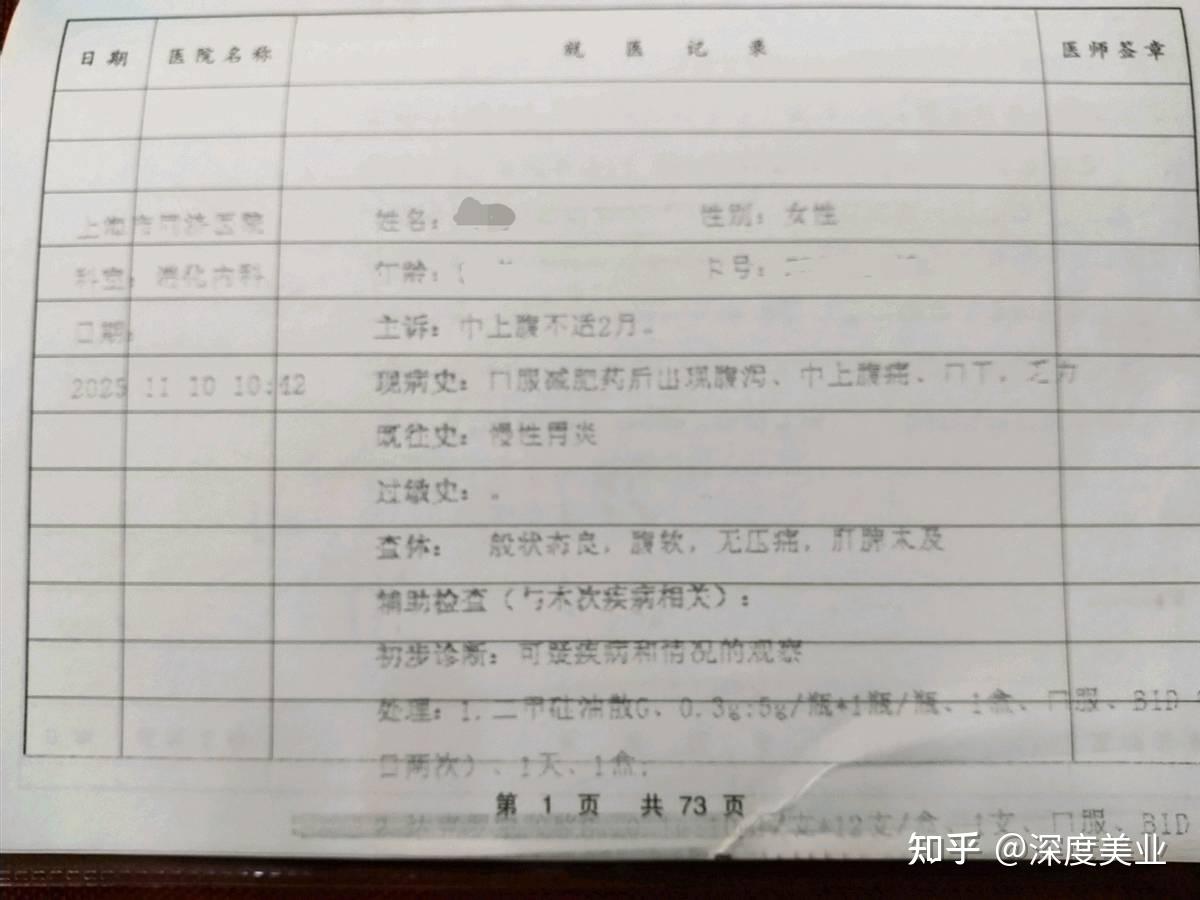 日期 医院名称 就医记录 医师签章
上海市同济医院 姓名: 性别: 女性
科室: 消化内科 年龄: 卡号:
日期: 主诉: 中上腹不适2月。
2025 11 10 10:42 现病史: 口服减肥药后出现腹泻、中上腹痛、口干,乏力
既往史: 慢性胃炎
过敏史: 。
查体: 一般状态良,腹软,无压痛,肝脾未及
辅助检查(与本次疾病相关):
初步诊断: 可疑疾病和情况的观察
处理: 1.二甲硅油散G、0.3g:5g/瓶*1瓶/瓶、1盒、口服、BID
日两次)、1天、1盒;
第 1 页 共 73 页
支*12支/盒、1支、口服、BID
知乎 @深度美业